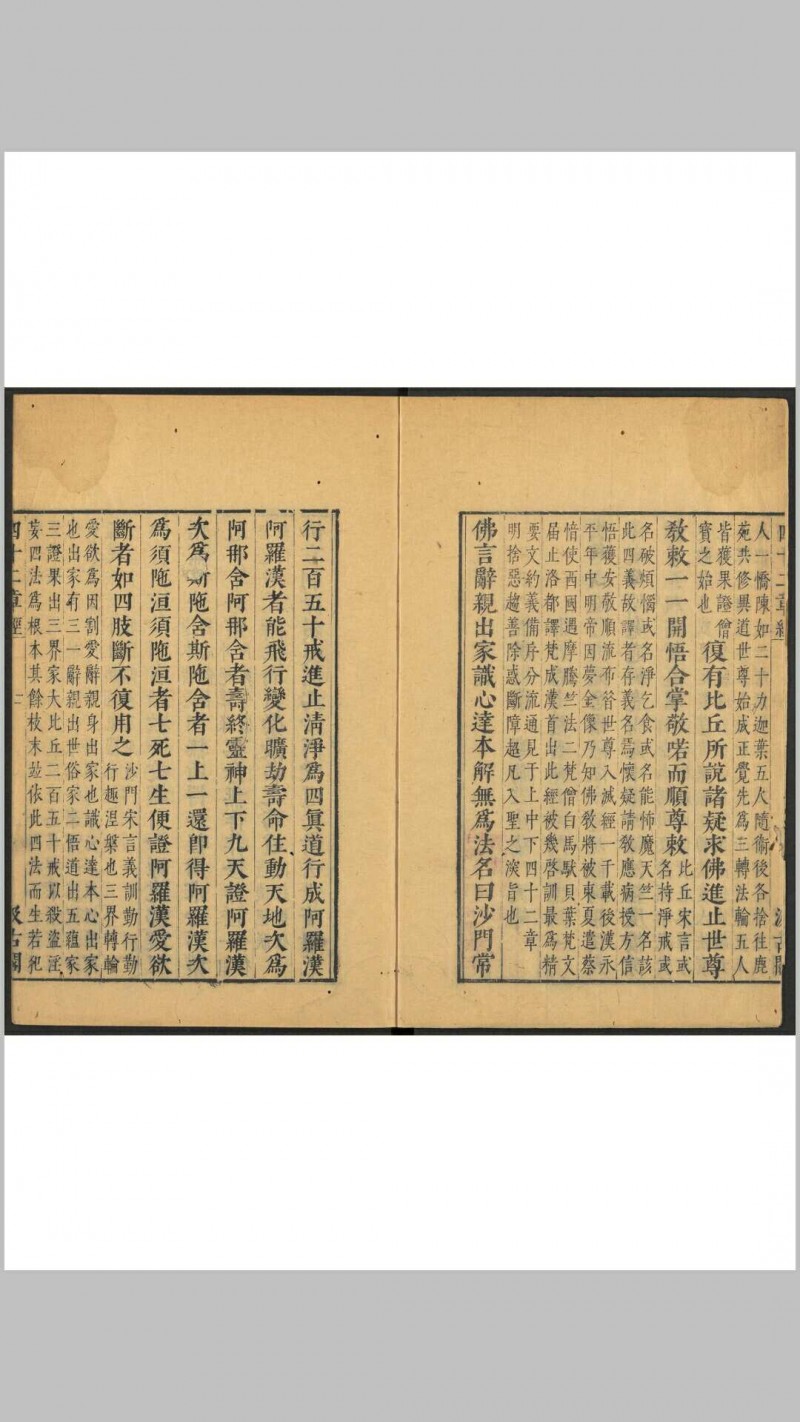 四十二章經 汲古閣
人一憍陳如二十力迦葉五人隨衛後各捨徃鹿
苑共修異道世尊始成正覺先為三轉法輪五人
皆獲果證僧
寶之始也
復有比丘所說諸疑求佛進止世尊
敎敕一一開悟合掌敬喏而順尊敕
比丘宋言或
名持淨戒或
名破煩惱或名淨乞食或名能怖魔天竺一名該
此四義故譯者存義名焉懷疑請敎應病授方信
悟獲安敬順流布昝世尊入滅經一千載後漢永
平年中明帝因夢金像乃知佛敎將被東夏遣蔡
愔使西國遇摩騰竺法二梵僧白馬馱貝葉梵文
届止洛都譯梵成漢首出此經被幾啓訓最為精
要文約義備序分流通見于上中下四十二章
明捨惡趍善除惑斷障超凡入聖之㴱旨也
佛言辭親出家識心達本解無爲法名曰沙門常
行二百五十戒進止清淨爲四眞道行成阿羅漢
阿羅漢者能飛行變化曠劫壽命住動天地次爲
阿那舍阿那舍者壽終靈神上下九天證阿羅漢
次爲斯陁舍斯陁舍者一上一還卽得阿羅漢次
爲須陁洹須陁洹者七死七生便證阿羅漢愛欲
斷者如四肢斷不復用之
沙門宋言義訓勤行勤
行趣涅槃也三界轉輪
愛欲爲因割愛辭親身出家也識心達本心出家
也出家有三一辭親出世俗家二悟道出五蘊家
三證果出三界家大比丘二百五十戒以殺盜淫
妄四法爲根本其餘枝末竝依此四法而生若犯
四十二章經 二 汲古閣